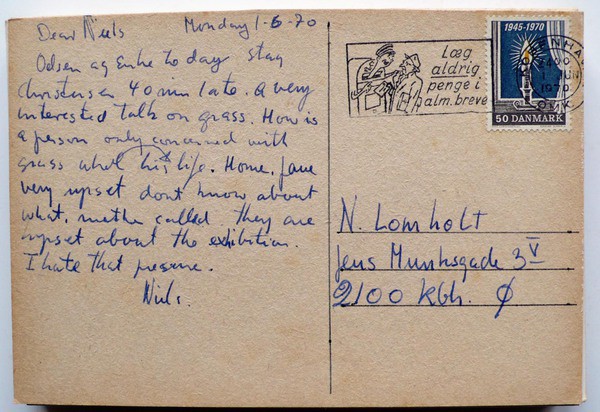 Dear Niels Monday 1-6-70
Odsen og Enke to day Stag
christensen 40 min late. A very
interested talk on grass. How is
a person only concerned with
grass whol his life. Home, Jane
very upset dont know about
what. mother called they are
upset about the exhibition.
I hate that
Niels.
1945-1970
50 DANMARK
Læg
aldrig
penge i
alm. breve
KØBENHAVN
1970
OMK
N. Lomholt
Jens Munksgade 3 V
2100 Kbh. Ø